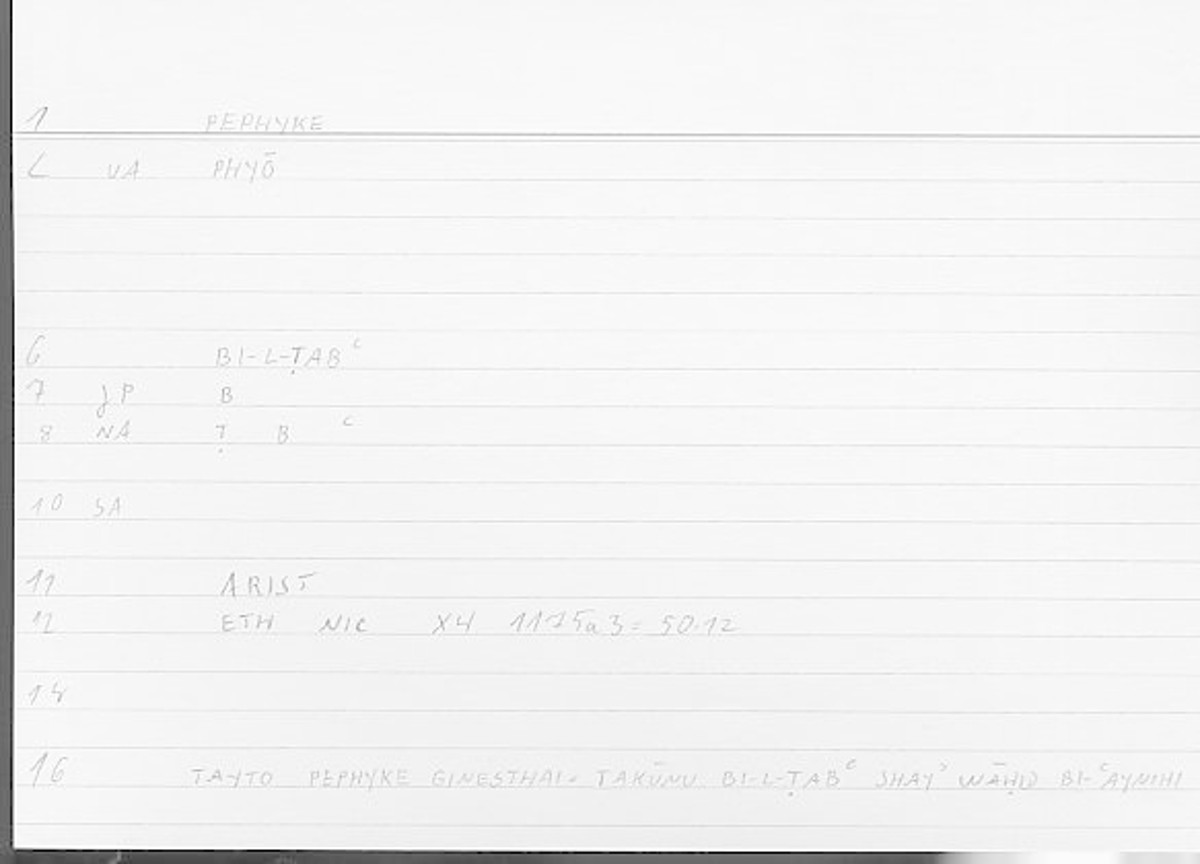 1 PEPHYKE
2 VA PHYŌ
6 BI-L-ṬABᶜ
7 JP B
8 NA Ṭ B ᶜ
10 SA
11 ARIST
12 ETH NIC X4 1175a3= 50.12
14
16 TAYTO PEPHYKE GINESTHAI= TAKŪNU BI-L-ṬABᶜ SHAYʾ WĀḤID BI-ᶜAYNIHI